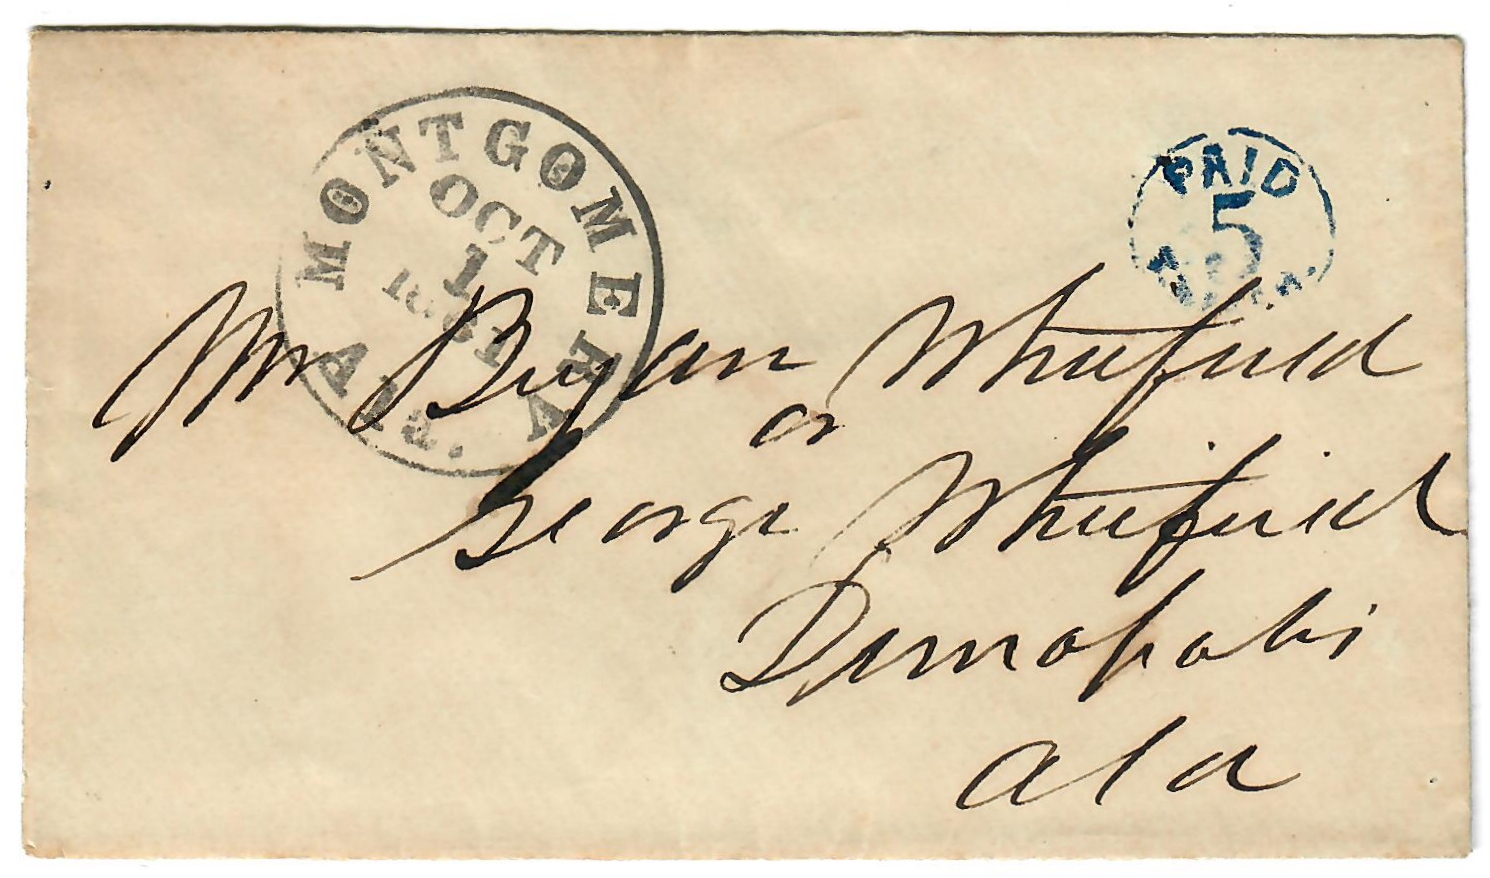 MONTGOMERY
Ala.
OCT
1
1861
PAID
5
Mr Bryan Whitfield
or
George Whitfield
Demopolis
Ala